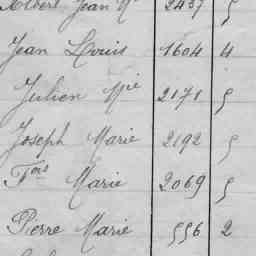 Albert Jean Mie 2437 5
Jean Louis 1604 4
Julien Mie 2171 5
Joseph Marie 2192 5
Fois Marie 2069 5
Pierre Marie 556 2